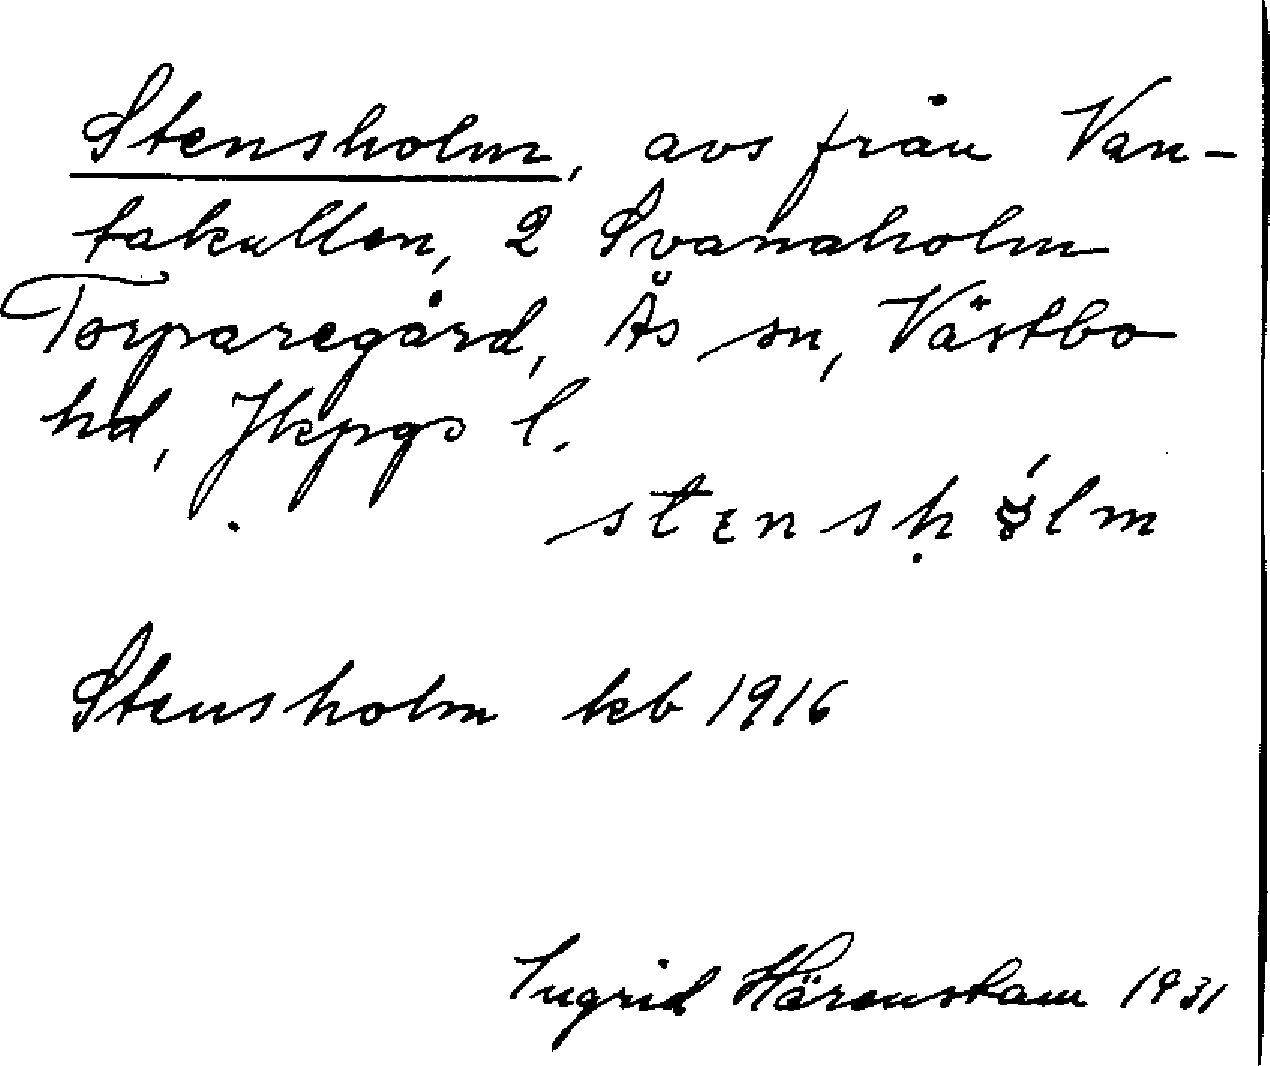 Stensholm, avs från Van-
takullen, 2 Svanaholm
Torparegård, Ås sn, Västbo
hd, Jkpgs l.
stɛnsḥólm
Stensholm kb 1916
Ingrid Härenstam 1931